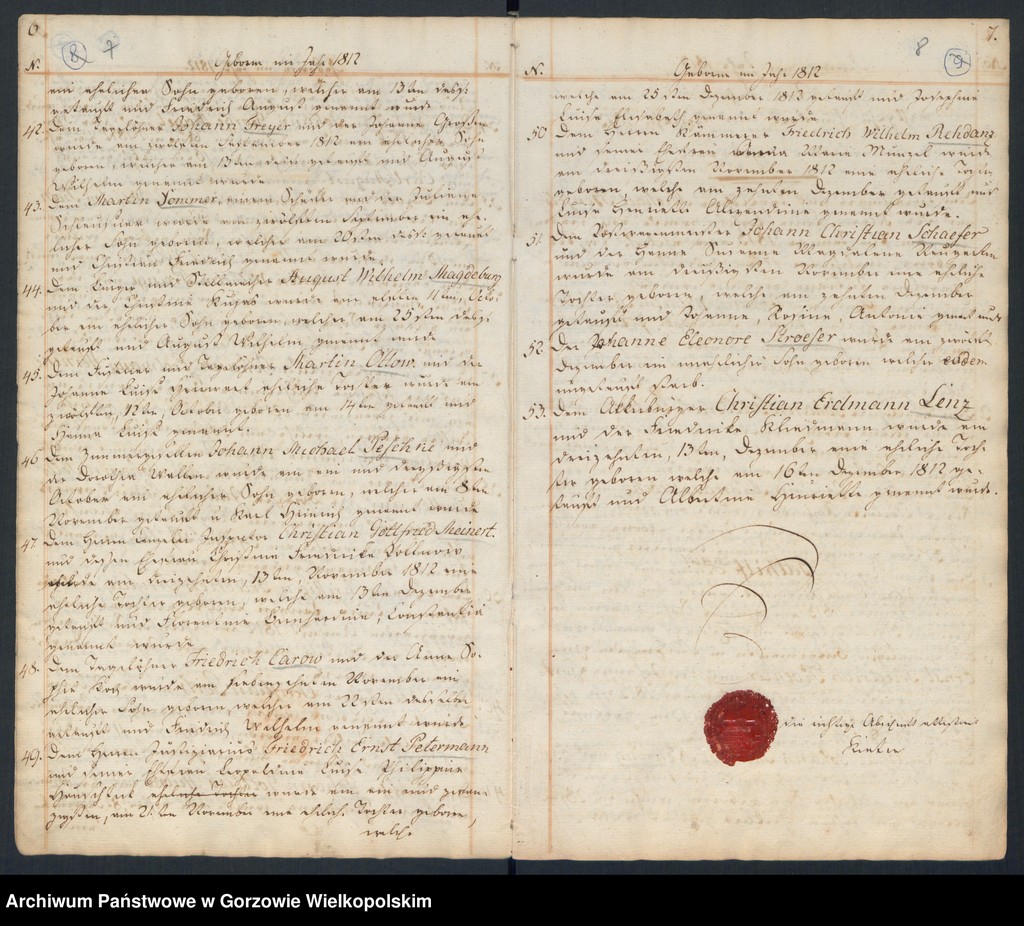 6
8 7
N. Geboren im Jahr 1812
ein ehelicher Sohn geboren, welcher am 13ten dess:
getauft und Friedrich August genannt wurde
42. Dem Tagelöhner Johann Freyer und der Johanne
wurde am zwölften September 1812 ein ehelicher Sohn
geboren, welcher am 13ten getauft und August
Wilhelm genannt wurde.
43. Dem Martin Sommer, einem Schäfer und der Juliane
wurde am zwölften September ein ehe-
licher Sohn geboren, welcher am 20sten dess: getauft
und Christian Friedrich genannt wurde.
44. Dem Bürger und Stellmacher August Wilhelm Magdeburg
und der Christine wurde am elften, 11ten, Octo-
ber ein ehelicher Sohn geboren, welcher am 25sten dess:
getauft und August Wilhelm genannt wurde
45. Dem und Tagelöhner Martin Ollow und der
Johanne Luise eheliche Tochter wurde am
zwölften, 12ten, October geboren am 14ten getauft und
Hanna Luise genannt.
46. Dem Zimmergesellen Johann Michael Peschke und
der Dorothea wurde am ein und dreyßigsten
October ein ehelicher Sohn geboren, welcher am 8ten
November getauft u Karl Heinrich genannt wurde
47. Dem Herrn Inspector Christian Gottfried Meinert.
und dessen Ehefrau Christine Friedericke
wurde am dreizehnten, 13ten, November 1812 eine
eheliche Tochter geboren, welche am 13ten Dezember
getauft und Florentine Bernhardine, Constantia
genannt wurde
48. Dem Tagelöhner Friedrich Carow und der Anne So-
phie Koch wurde am siebenzehnten November ein
ehelicher Sohn geboren, welcher am 22sten desselben
getauft und Friedrich Wilhelm genannt wurde
49. Dem Herrn Justiziarius Friedrich Ernst Petermann
und seiner Ehefrau Leopoldine Luise Philippine
eheliche Tochter wurde am ein und zwan-
zigsten, am 21ten November eine eheliche Tochter geboren,
welche
7.
8 9
N. Geboren im Jahr 1812
welche am 25sten Dezember 1812 getauft und Josephine
Luise Elisabeth genannt wurde
50. Dem Herrn Kämmerer Friedrich Wilhelm Rehdanz
und seiner Ehefrau Marie wurde
am dreißigsten November 1812 eine eheliche Tochter
geboren, welche am zehnten Dezember getauft und
Luise Henriette Alwendine genannt wurde.
51. Dem Johann Christian Schaefer
und der Hanne Susanne Magdalene
wurde am dreißigsten November eine eheliche
Tochter geboren, welche am zehnten Dezember
getauft und Johanne, Rosine, Antonie genannt
52. Der Johanne Eleonore Stroeser wurde am zwölften
Dezember ein unehelicher Sohn geboren welcher
ungetauft starb.
53. Dem Ackerbürger Christian Erdmann Lenz
und der Friederike Kliedmann wurde am
dreizehnten, 13ten, Dezember eine eheliche Toch-
ter geboren welche am 16ten Dezember 1812 ge-
tauft und Albertine Henriette genannt wurde.
die richtige Abschrift attestirt
Archiwum Państwowe w Gorzowie Wielkopolskim